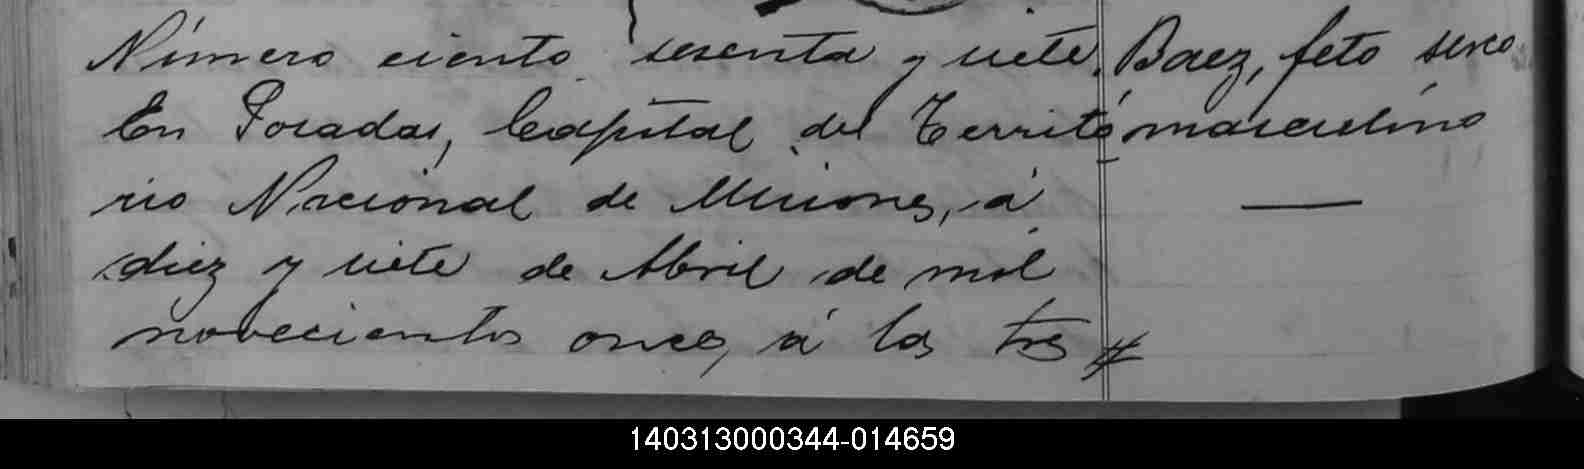 Número ciento sesenta y siete.
En Posadas, Capital del Territo
rio Nacional de Misiones, á
diez y siete de Abril de mil
novecientos once, á las tres
Baez, feto sexo
masculino
140313000344-014659